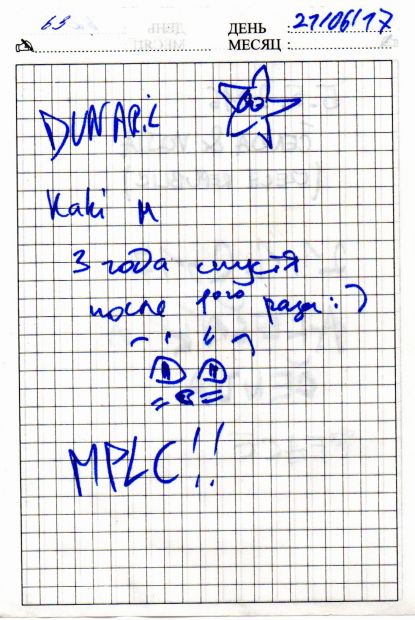 63
ДЕНЬ 21/06/17
МЕСЯЦ :
DUNARiL
Kaki M
3 года спустя
после 1ого раза :)
MPLC!!